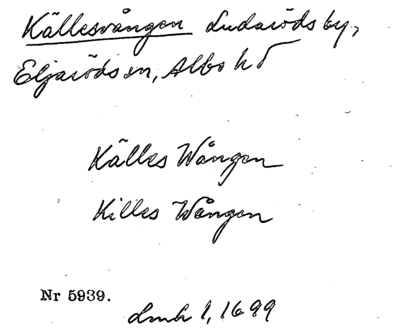 Källesvången Ludaröds by,
Eljaröds sn, Albo hd
Källes Wången
Killes Wången
Nr 5939.
Lmh 1, 1699